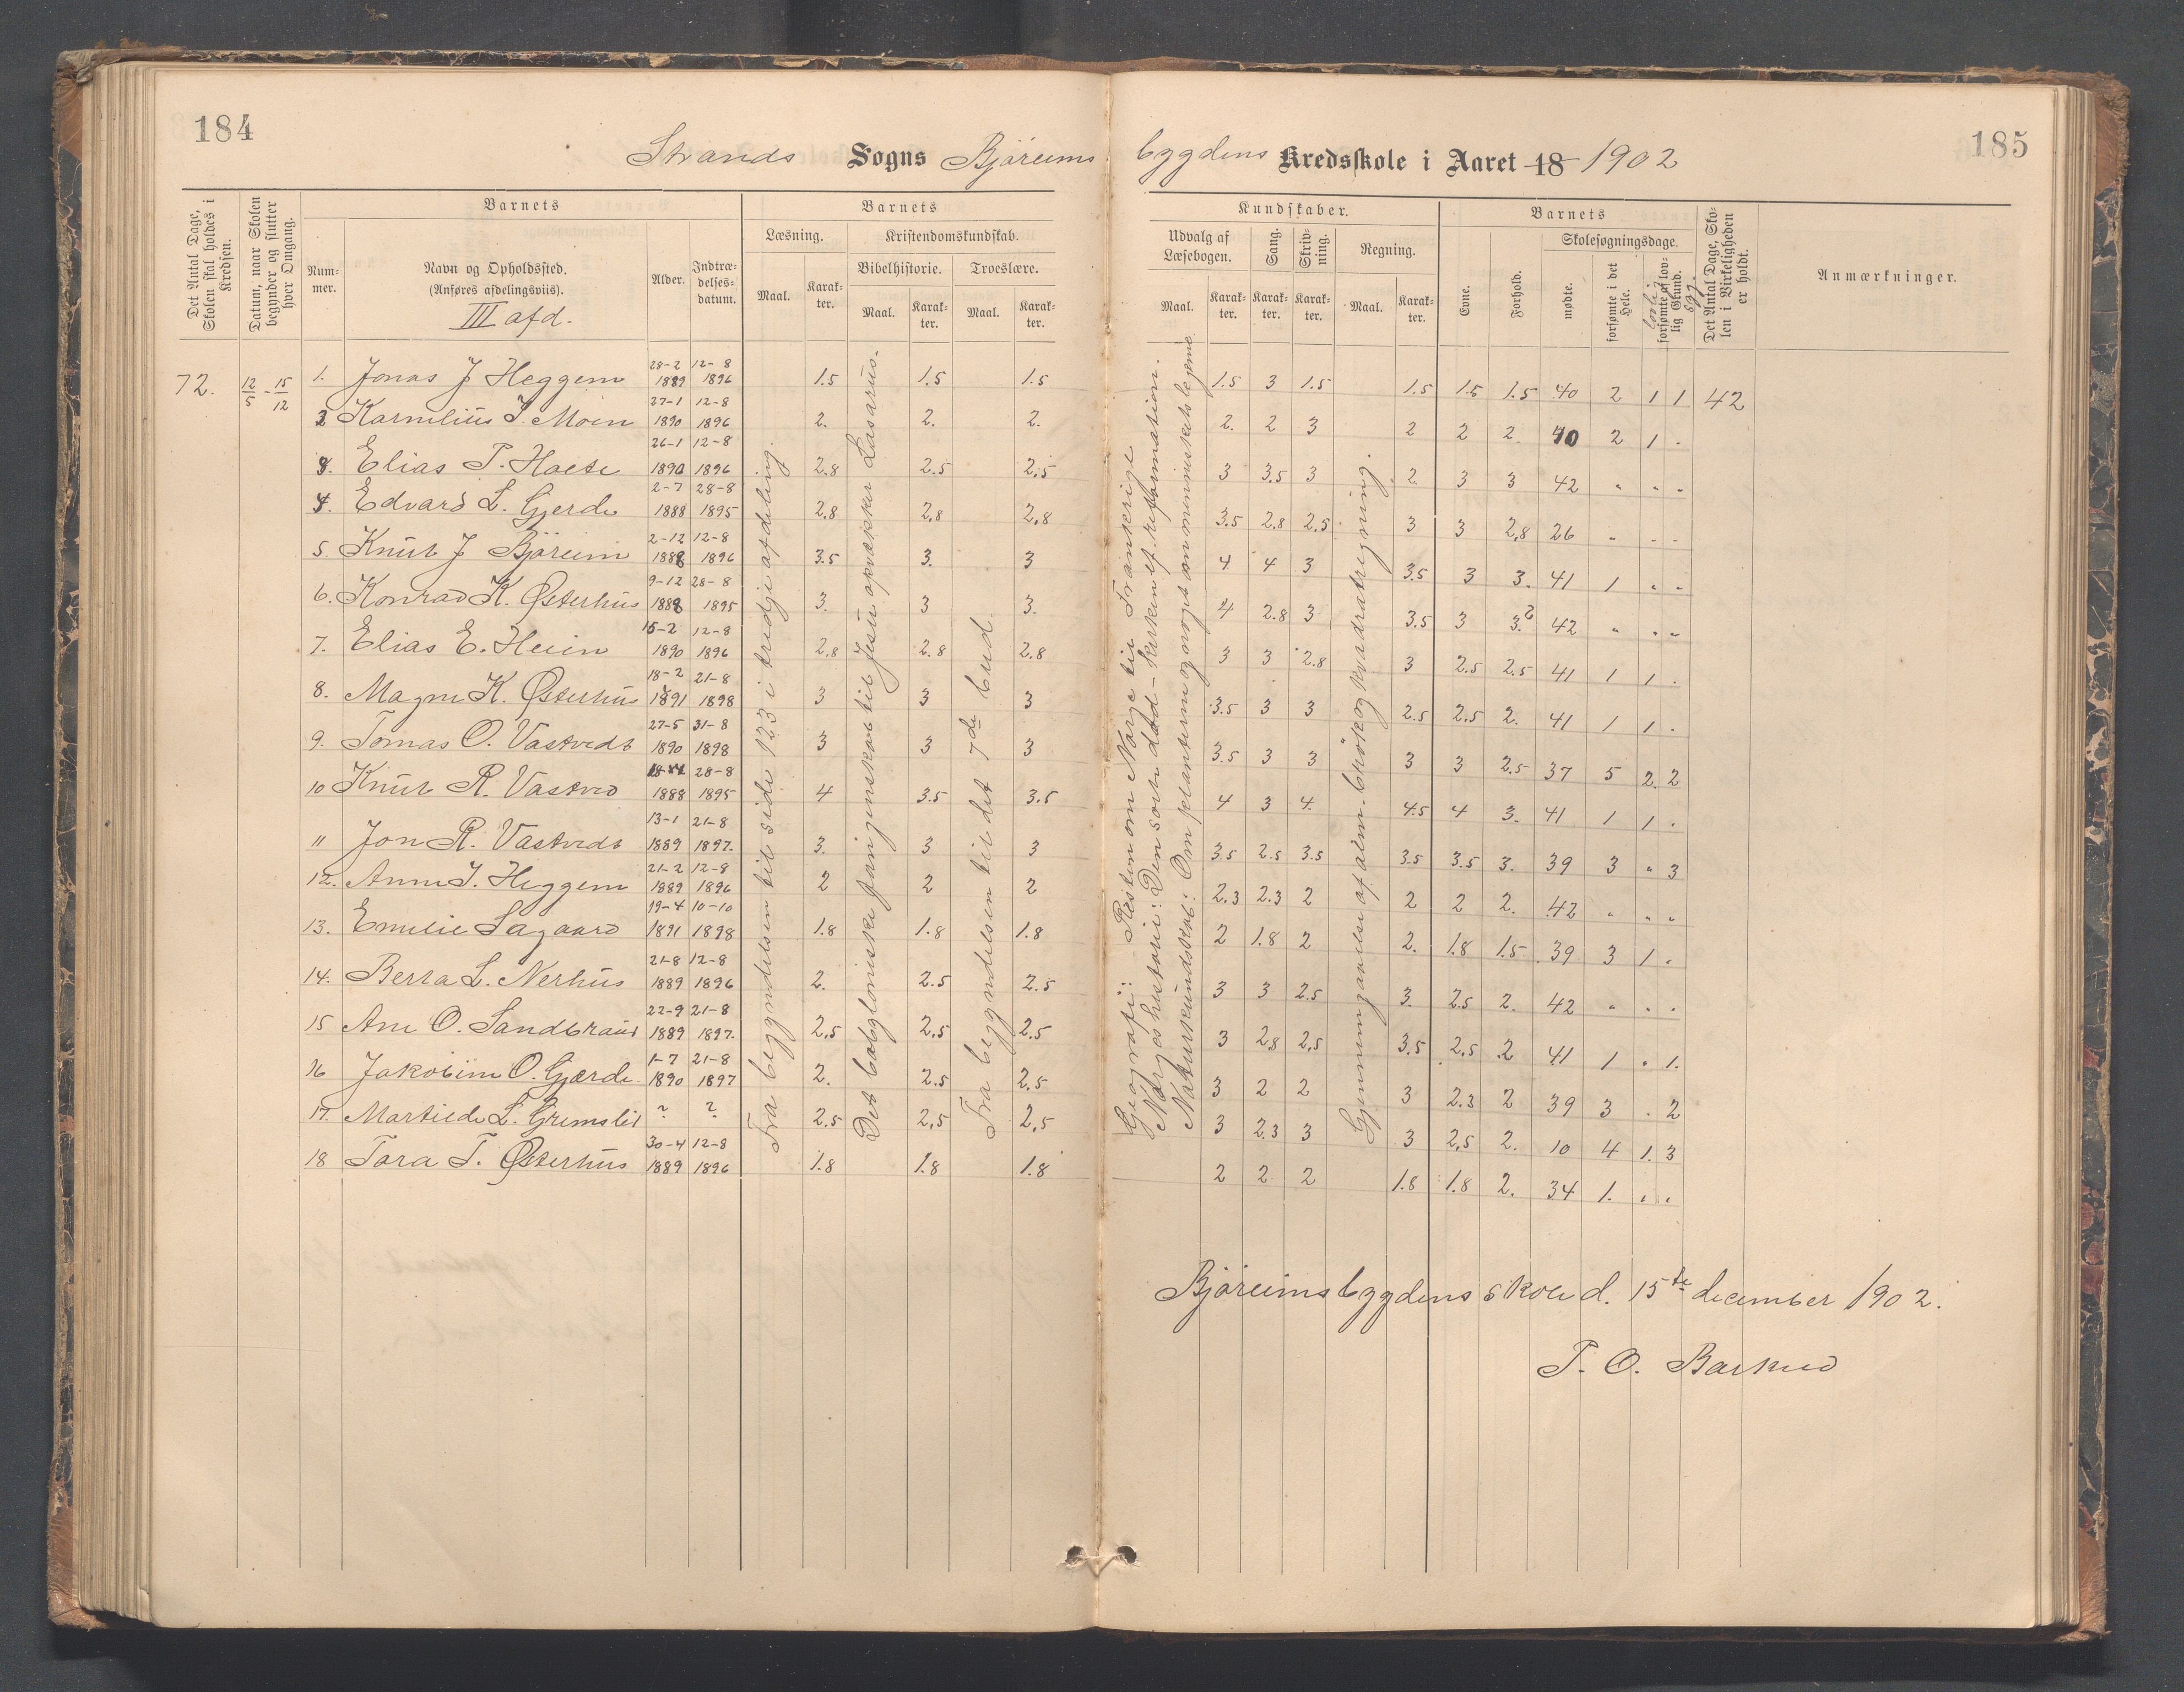 184
185
Strands Sogns Bjøreimsbygdens Kredsskole i Aaret 18 1902
Det Antal Dage, Skolen skal holdes i Kredsen.
Datum, naar Skolen begynder og slutter hver Omgang.
Barnets
Nummer.
Navn og Opholdssted.
(Anføres afdelingsviis).
III afd.
Alder.
Indtrædelsesdatum.
Barnets
Læsning.
Maal.
Karakter.
Kristendomskundskab.
Bibelhistorie.
Maal.
Karakter.
Troeslære.
Maal.
Karakter.
Kundskaber.
Udvalg af Læsebogen.
Maal.
Karakter.
Sang.
Karakter.
Skrivning.
Karakter.
Regning.
Maal.
Karakter.
Barnets
Evne.
Forhold.
Skolesøgningsdage.
mødte.
forsømte i det Hele.
forsømte af lovlig Grund.
Det Antal Dage, Skolen i Virkeligheden er holdt.
Anmærkninger.
72. 12/5 - 15/12
1. Jonas J Heggem 28-2 1889 12-8 1896 1.5 1.5 1.5 1.5 3 1.5 1.5 1.5 1.5 40 2 1 1 42
2 Karnelius I. Moen 27-1 1890 12-8 1896 2. 2. 2. 2. 2 3 2 2 2. 40 2 1 .
3. Elias T. Holte 26-1 1890 12-8 1896 2.8 2.5 2.5 3 3.5 3 2. 3 3 42 " " "
4. Edvard L. Gjerde 2-7 1888 28-8 1895 2.8 2.8 2.8 3.5 2.8 2.5 3 3 2.8 26 " " "
5. Knut J Bjøreim 2-12 1888 12-8 1896 3.5 3. 3 4 4 3 3.5 3 3. 41 1 " "
6. Konrad K. Østerhus 9-12 1888 28-8 1895 3. 3 3. 4 2.8 3 3.5 3 3. 42 " " "
7. Elias E. Heien 15-2 1890 12-8 1896 2.8 2.8 2.8 3 3 2.8 3 2.5 2.5 41 1 1 .
8. Magne K. Østerhus 18-2 1891 21-8 1898 3 3 3 3.5 3 3 2.5 2.5 2. 41 1 1 .
9. Tomas O. Vastvedt 27-5 1890 31-8 1898 3 3 3 3.5 3 3 3 3 2.5 37 5 2. 2
10 Knut R. Vastved 1888 28-8 1895 4 3.5 3.5 4 3 4. 4.5 4 3. 41 1 1 .
11 Jon R. Vastvedt 13-1 1889 21-8 1897. 3. 3 3 3.5 2.5 3.5 3.5 3.5 3. 39 3 " 3
12. Anne J. Heggem 21-2 1889 12-8 1896 2 2 2 2.3 2.3 2 2 2 2. 42 " " "
13. Emelie Lagaard 19-4 1891 10-10 1898 1.8 1.8 1.8 2 1.8 2 2. 1.8 1.5 39 3 1 .
14. Berta L. Nerhus 21-8 1889 12-8 1896 2. 2.5 2.5 3 3 2.5 3. 2.5 2. 42 " . .
15 Ane O. Sandbraut 22-9 1889 21-8 1897. 2.5 2.5 2.5 3 2.8 2.5 3.5 2.5 2 41 1 . 1.
16 Jakobine O. Gjerde 1-7 1890 21-8 1897 2. 2.5 2.5 3 2 2 3 2.3 2 39 3 . 2
17. Martilde L. Gremslid ? ? 2.5 2.5 2.5 3 2.3 3 3 2.5 2. 10 4 1. 3
18 Tora T. Østerhus 30-4 1889 12-8 1896 1.8 1.8 1.8 2 2 2 1.8 1.8 2. 34 1. . .
Fra begyndelsen til side 123 i tredje afdeling.
Det babyloniske fangenskab til Jesus opvækker Lasarus.
Fra begyndelsen til det 7de bud
Geografi: Resten om Norge til Frankerige
Norges historie: Den sorte død - kirken ef. reformation.
Naturkundskab: Om planterne og noget om menneskets legeme
Gjennemgaaelse af alm. brøk og kvadratregning.
Bjøreimsbygdens skole d. 15te december 1902.
T. O. Barkved